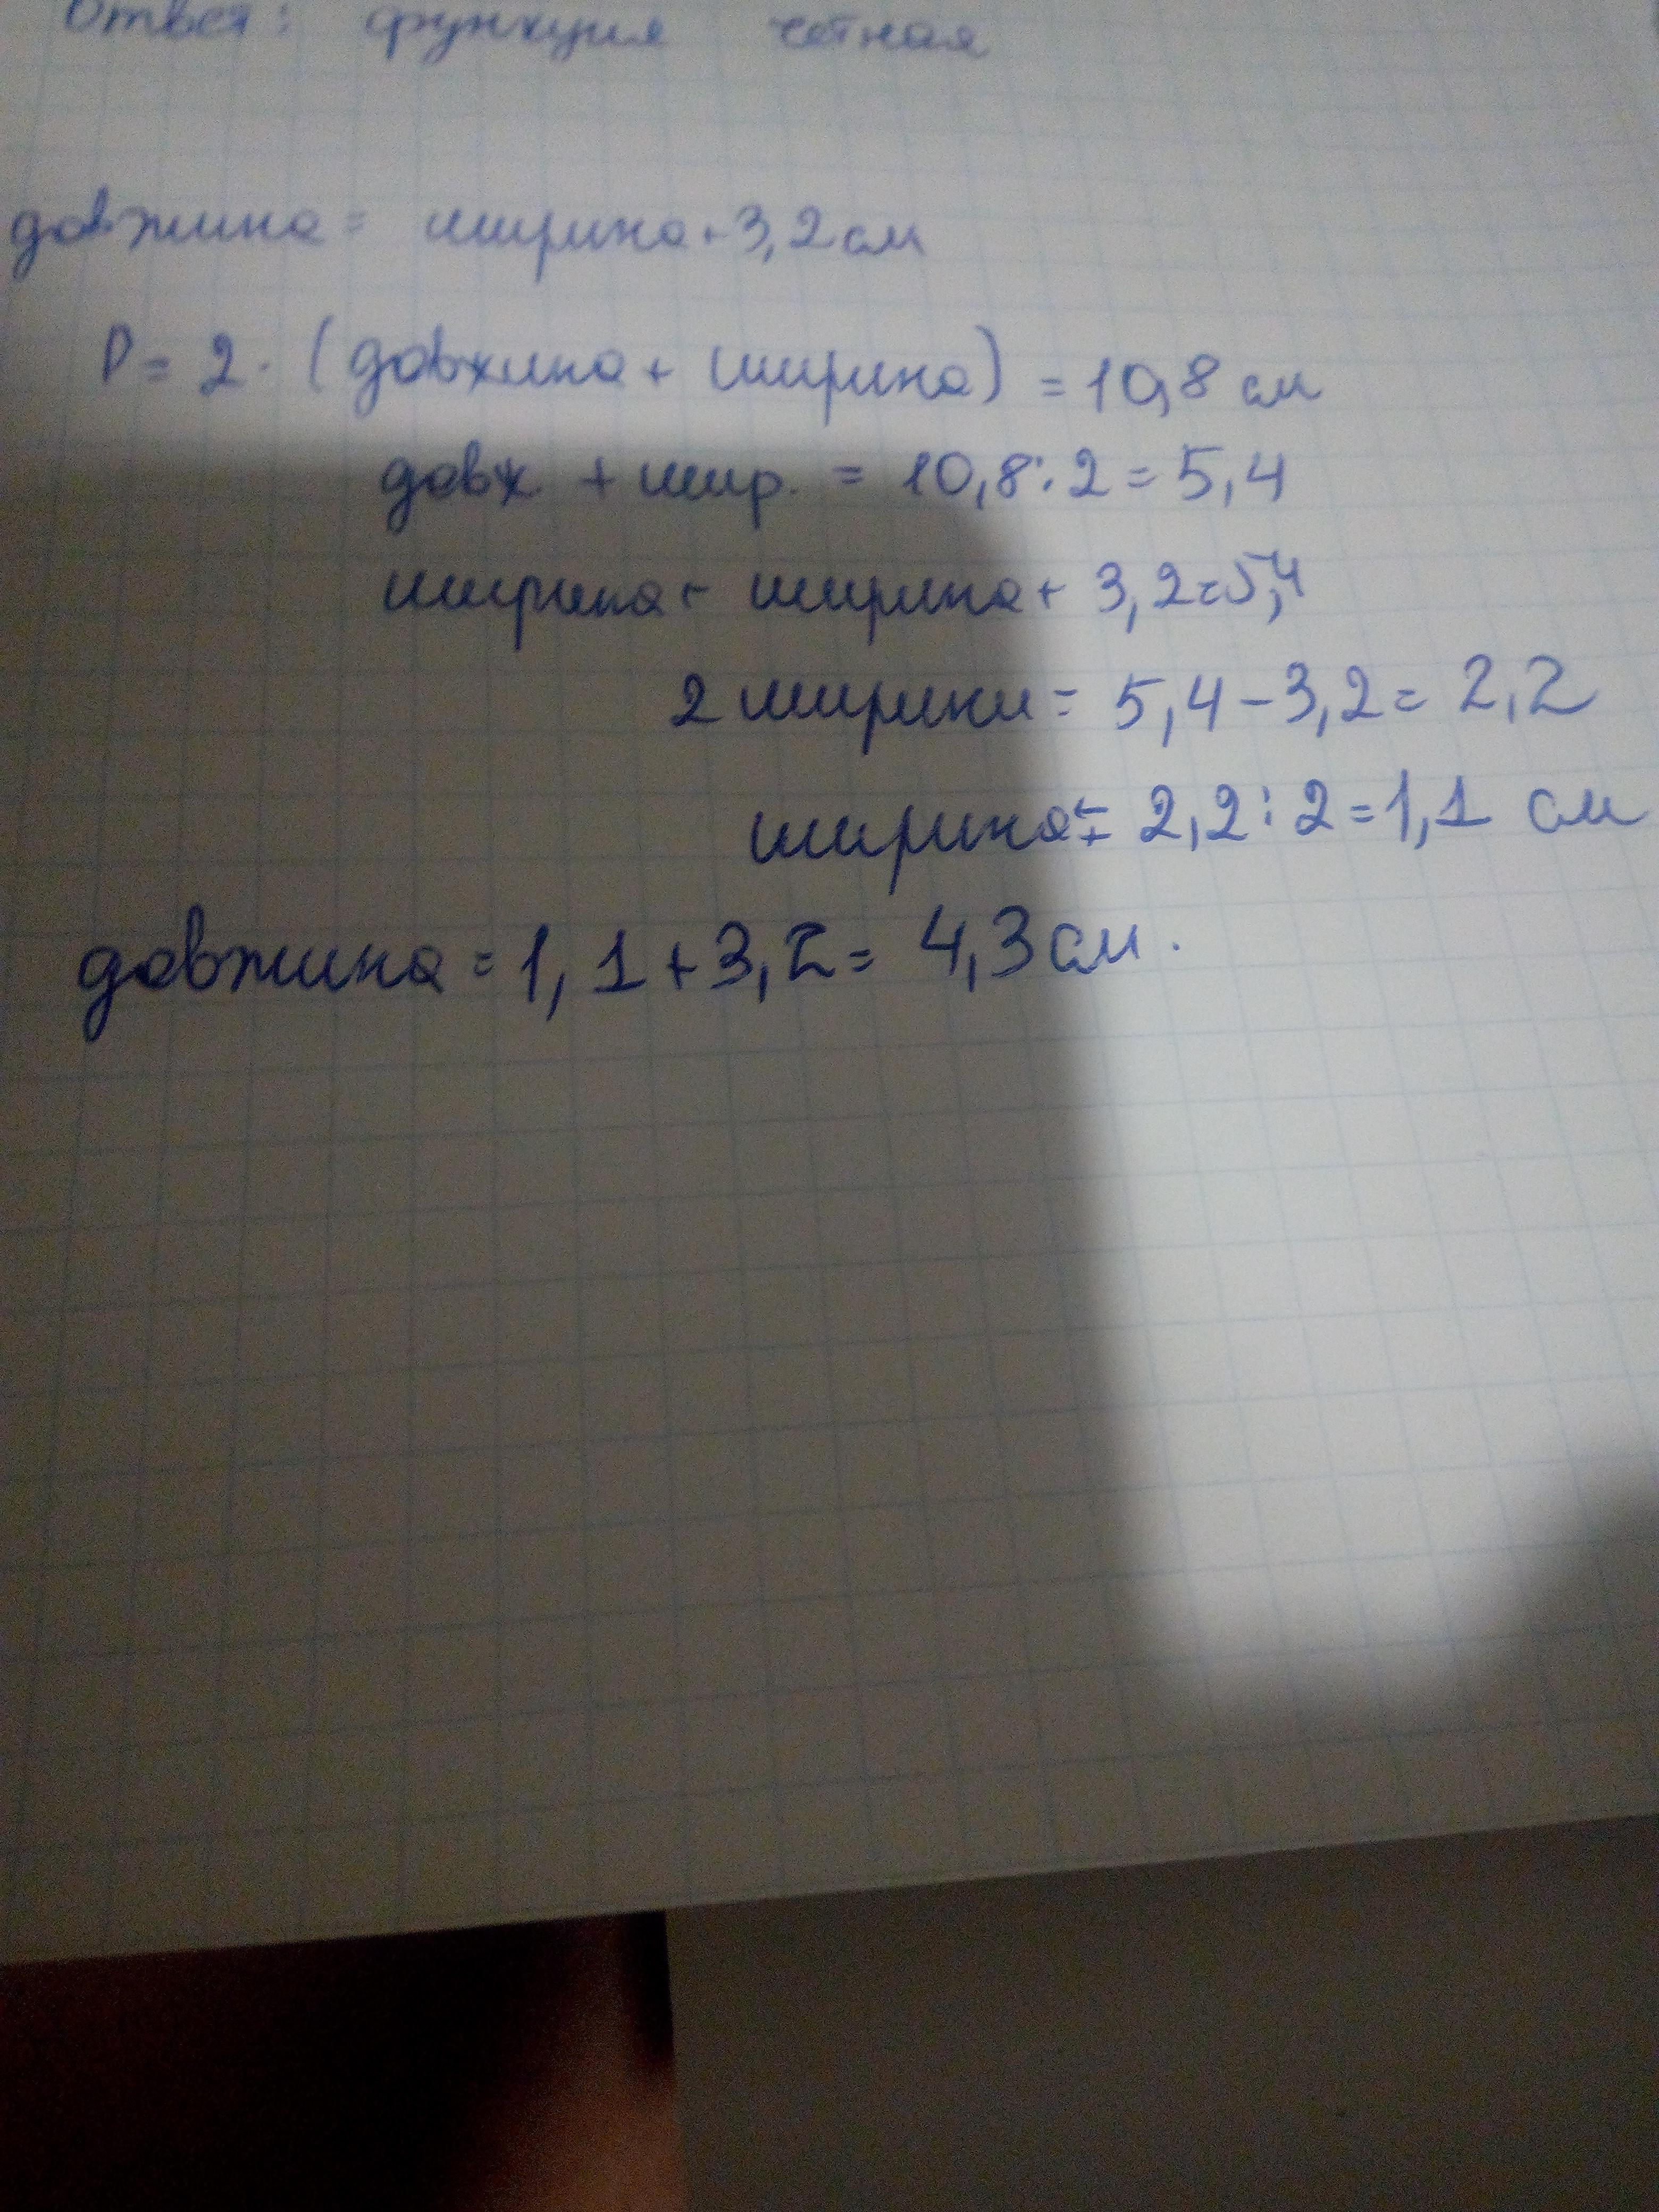 Ответ: функция чётная
довжина = ширина + 3,2 см
P = 2 · (довжина + ширина) = 10,8 см
довж. + шир. = 10,8 : 2 = 5,4
ширина + ширина + 3,2 = 5,4
2 ширини = 5,4 - 3,2 = 2,2
ширина = 2,2 : 2 = 1,1 см
довжина = 1,1 + 3,2 = 4,3 см.